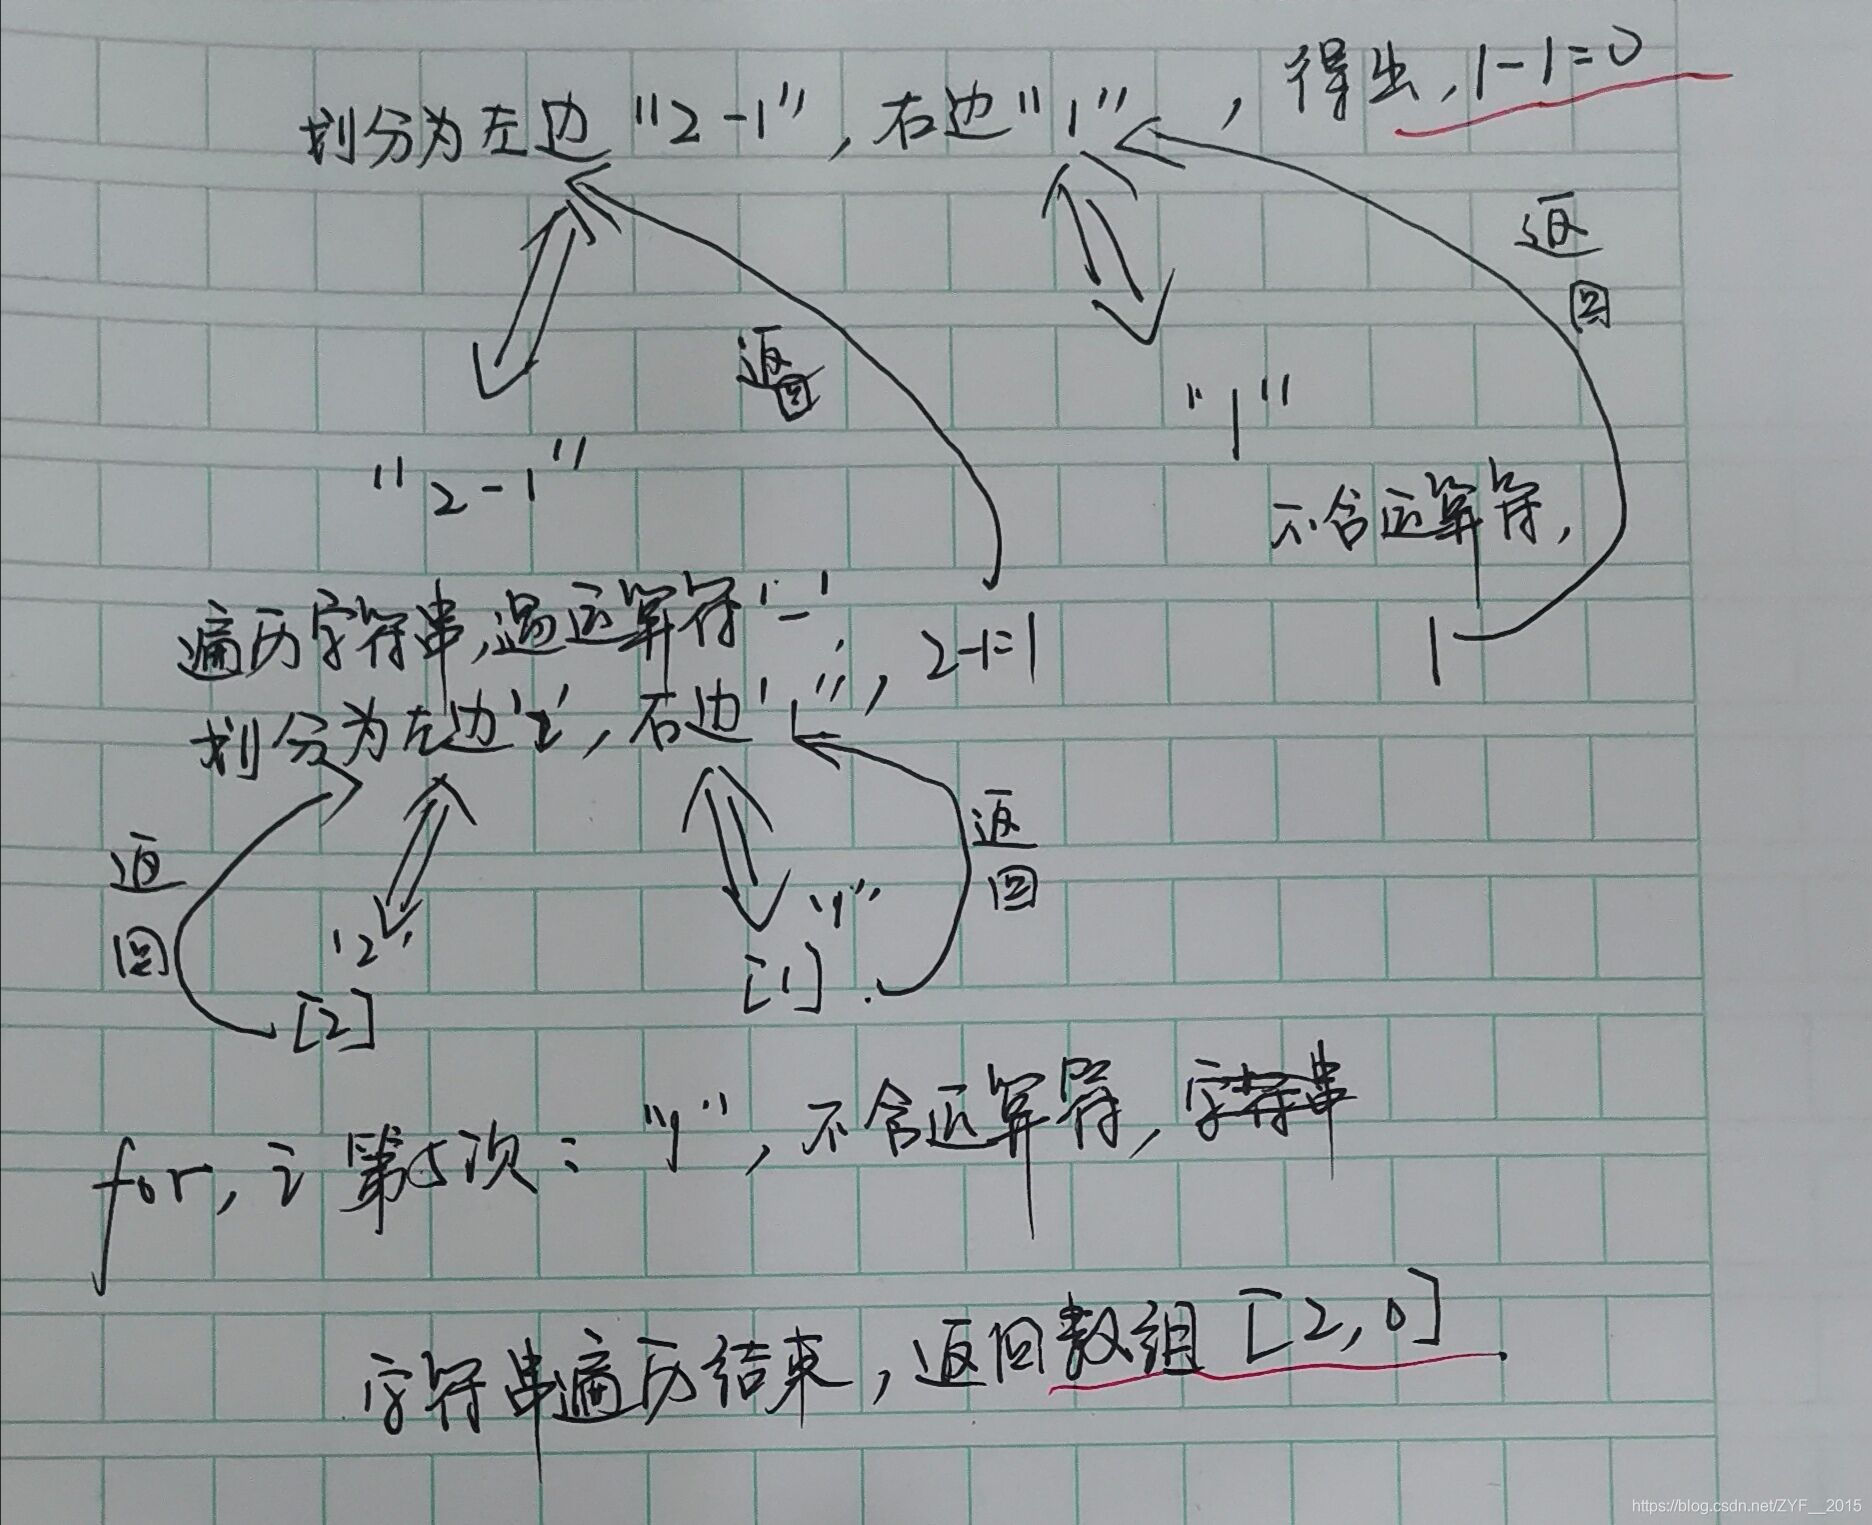 划分为左边"2-1",右边"1",得出,1-1=0
返回
返回
"2-1"
"1"
不含运算符,
1
遍历字符串,遇运算符'-',
划分为左边'2',右边'1',2-1=1
返回
返回
'2'
"1"
[2]
[1]
for,i第5次:"1",不含运算符,字符串
字符串遍历结束,返回数组[2,0]
https://blog.csdn.net/ZYF__2015